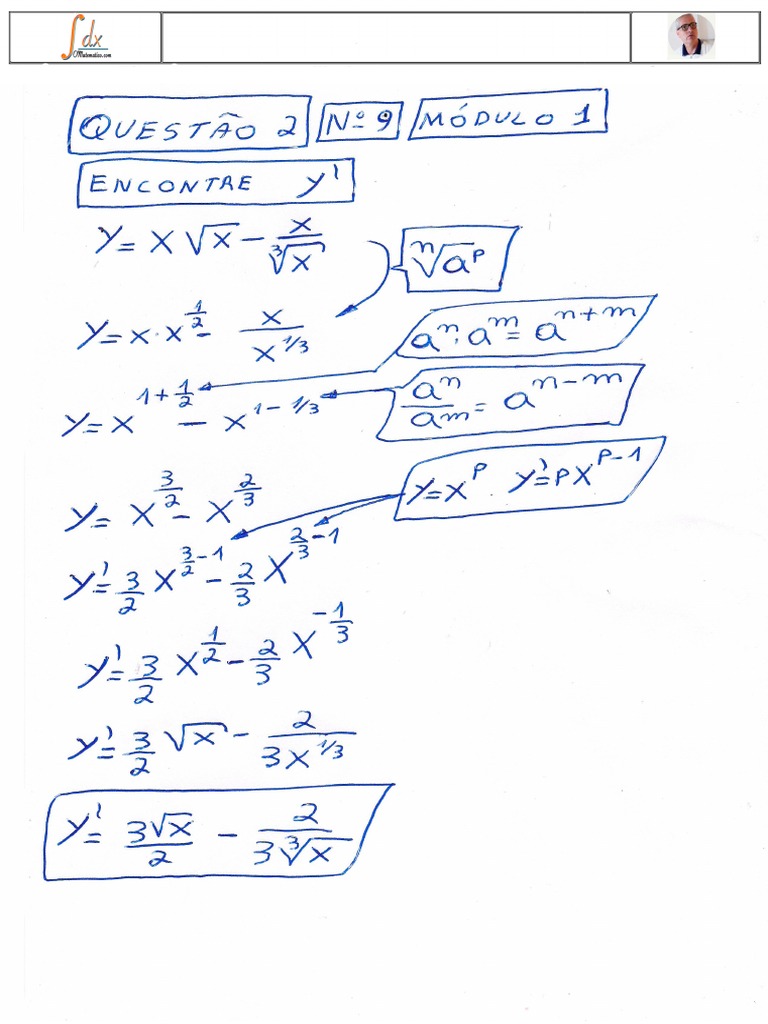 ∫dx
OMatematico.com
QUESTÃO 2 Nº 9 MÓDULO 1
ENCONTRE y'
y = x √x − x/∛x
ⁿ√aᵖ
y = x · x^(1/2) − x/x^(1/3)
aⁿ · aᵐ = a^(n+m)
y = x^(1+1/2) − x^(1−1/3)
aⁿ/aᵐ = a^(n−m)
y = x^(3/2) − x^(2/3)
y = x^p y' = p x^(p−1)
y' = 3/2 x^(3/2−1) − 2/3 x^(2/3−1)
y' = 3/2 x^(1/2) − 2/3 x^(−1/3)
y' = 3/2 √x − 2/(3x^(1/3))
y' = 3√x/2 − 2/(3∛x)